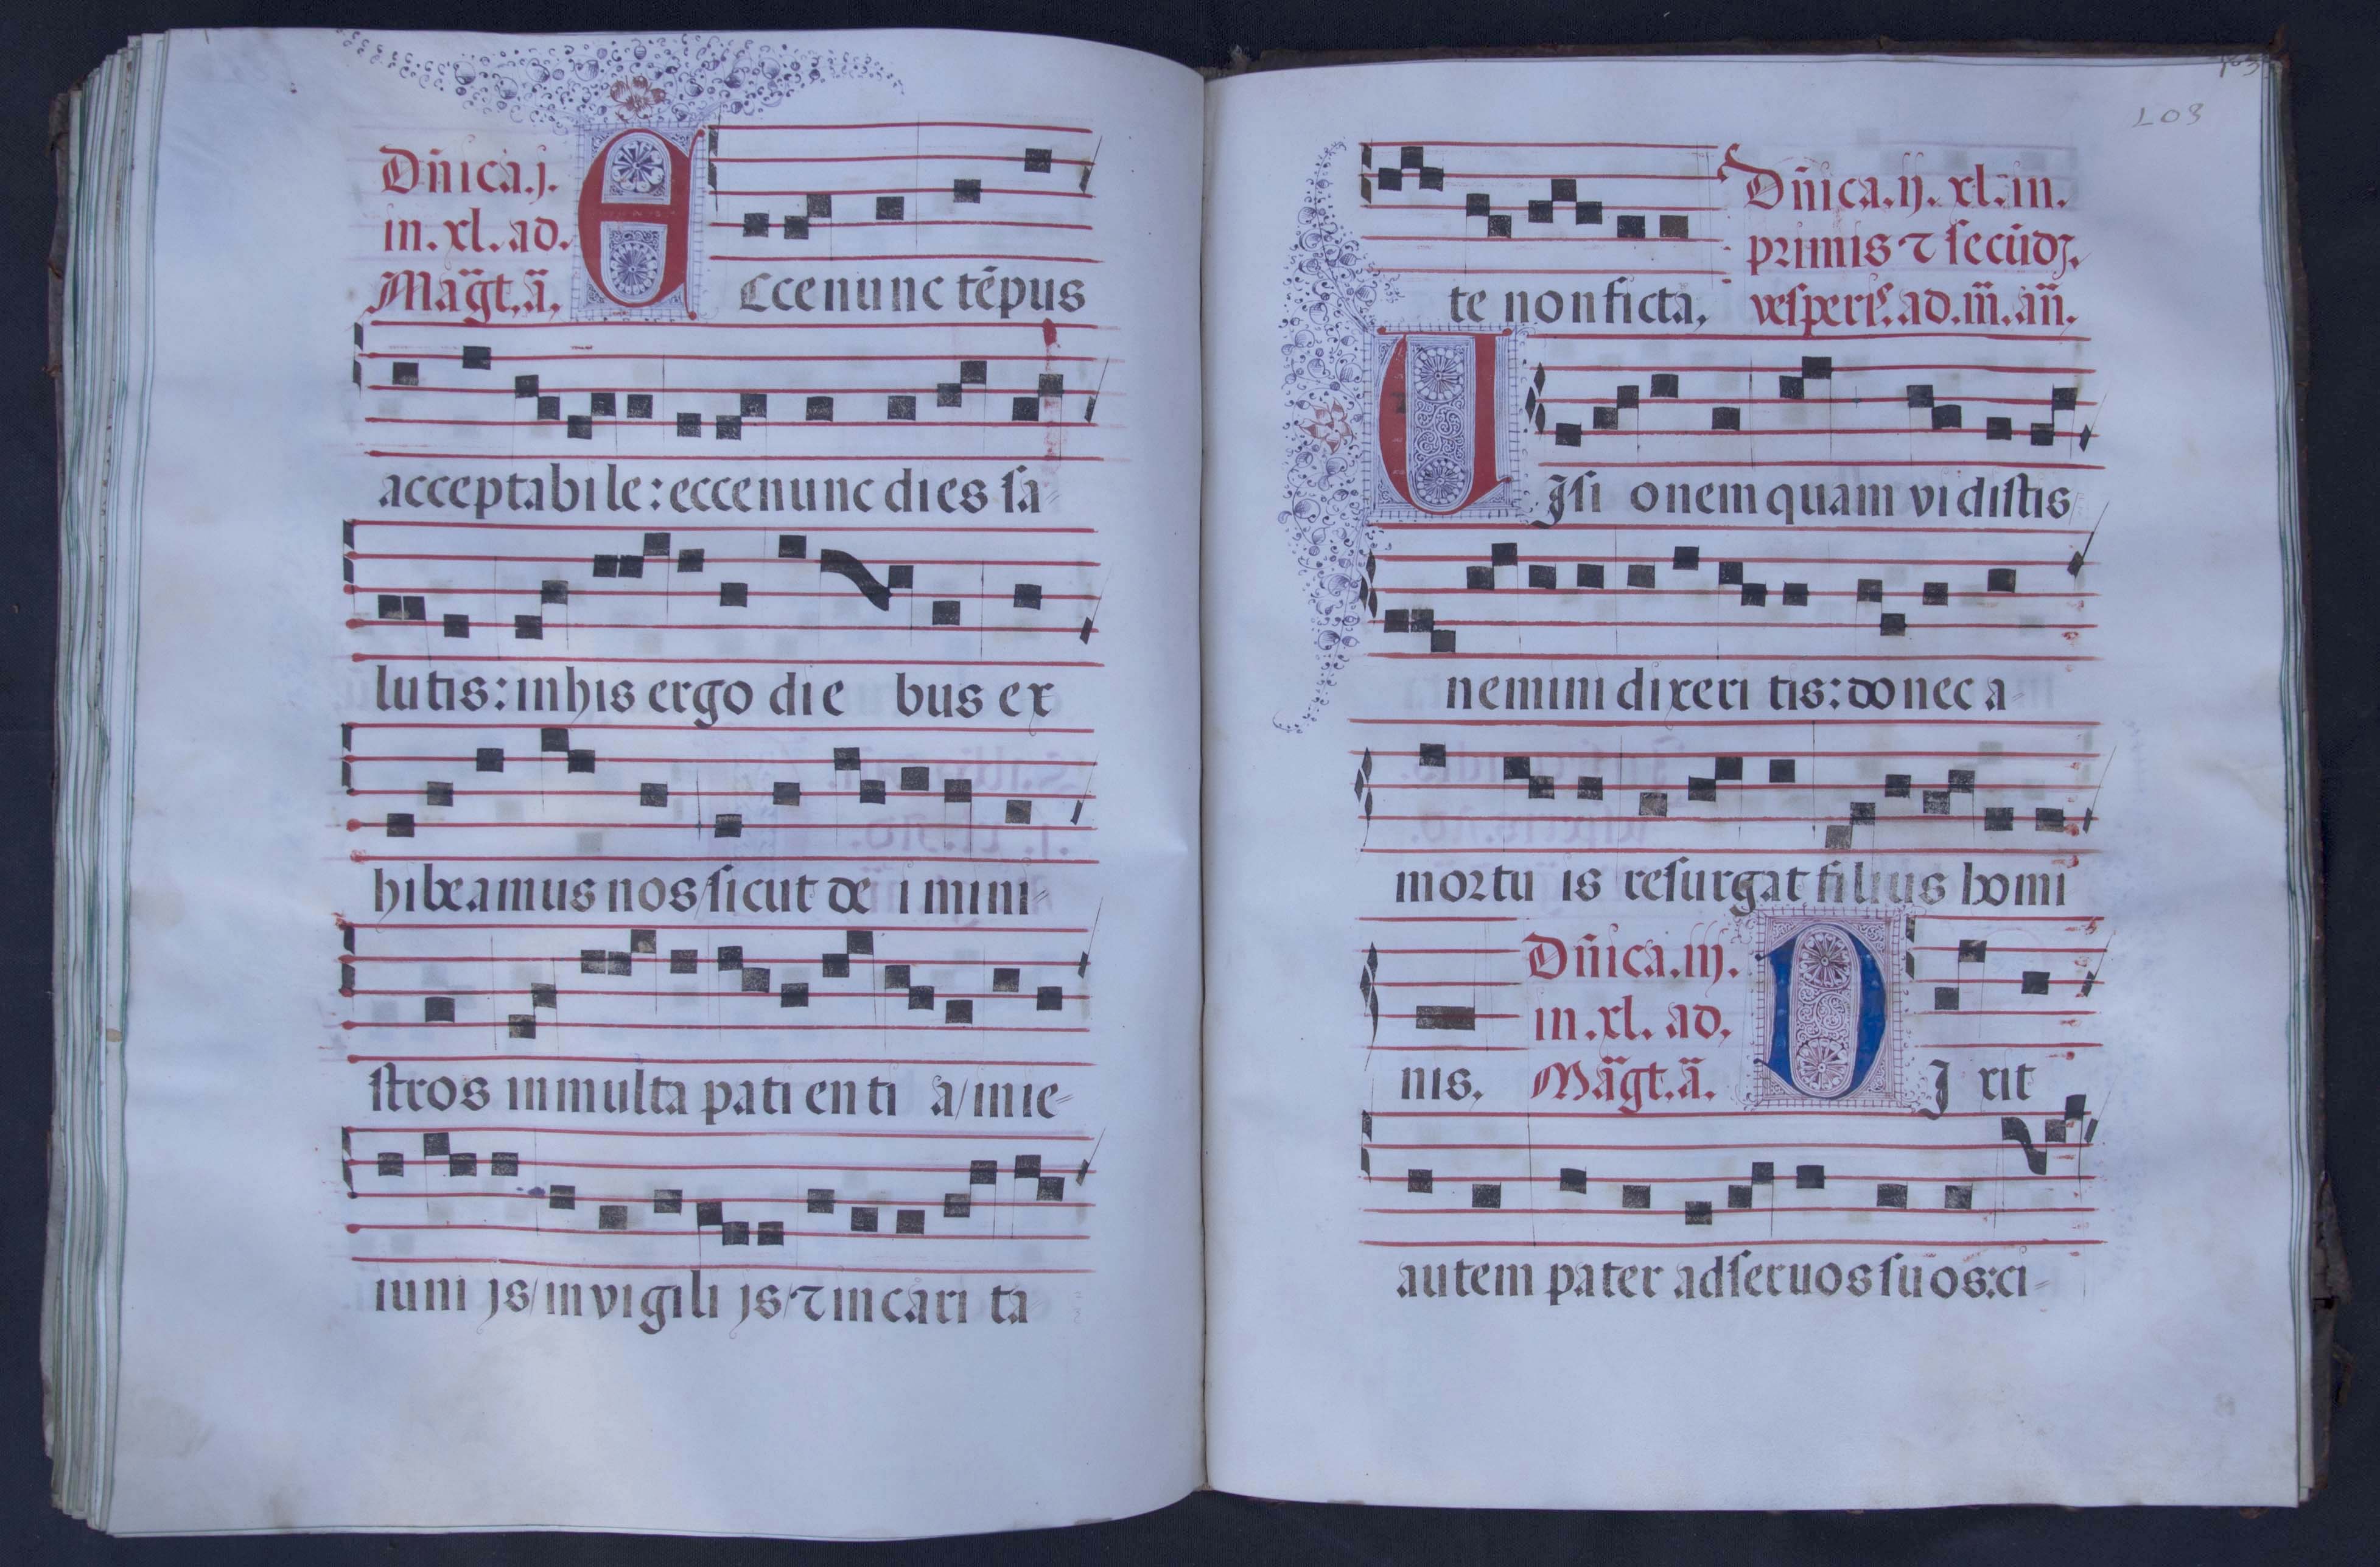 Dñica.j.
in.xl.ad.
Mãgt.ã.
Eccenunc tẽpus
acceptabile: eccenunc dies ſa⸗
lutis: inhis ergo die bus ex
hibeamus nos/ſicut de i mini⸗
ſtros inmulta pati enti a/inie⸗
iuni js/invigili js/⁊incari ta
103
te nonficta,
Dñica.ij.xl.in.
primis ⁊ ſecũdꝫ.
veſperis.ad.m̃.añ.
UJſi onem quam vidiſtis
nemini dixeri tis: donec a
mortu is reſurgat filius homi
nis.
Dñica.iij.
in.xl.ad.
Mãgt.ã.
DJ xit
autem pater adſeruosſuos: ci⸗